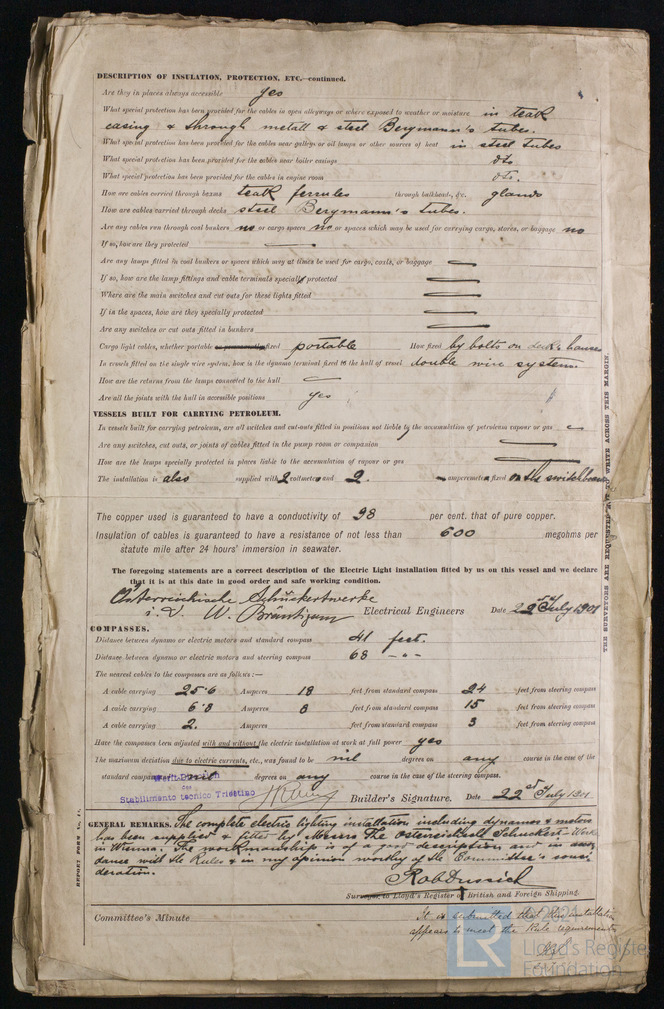 DESCRIPTION OF INSULATION, PROTECTION, ETC.—continued.
Are they in places always accessible yes
What special protection has been provided for the cables in open alleyways or where exposed to weather or moisture in teak
casing & through metall & steel Bergmann's tubes.
What special protection has been provided for the cables near galleys or oil lamps or other sources of heat in steel tubes
What special protection has been provided for the cables near boiler casings do
What special protection has been provided for the cables in engine room do.
How are cables carried through beams teak ferrules through bulkheads, &c. glands
How are cables carried through decks steel Bergmann's tubes.
Are any cables run through coal bunkers no or cargo spaces no or spaces which may be used for carrying cargo, stores, or baggage no
If so, how are they protected —
Are any lamps fitted in coal bunkers or spaces which may at times be used for cargo, coals, or baggage —
If so, how are the lamp fittings and cable terminals specially protected —
Where are the main switches and cut outs for these lights fitted —
If in the spaces, how are they specially protected —
Are any switches or cut outs fitted in bunkers —
Cargo light cables, whether portable or permanently fixed portable How fixed by bolts on deck's houses
In vessels fitted on the single wire system, how is the dynamo terminal fixed to the hull of vessel double wire system.
How are the returns from the lamps connected to the hull —
Are all the joints with the hull in accessible positions yes
VESSELS BUILT FOR CARRYING PETROLEUM.
In vessels built for carrying petroleum, are all switches and cut-outs fitted in positions not liable to the accumulation of petroleum vapour or gas —
Are any switches, cut outs, or joints of cables fitted in the pump room or companion —
How are the lamps specially protected in places liable to the accumulation of vapour or gas —
The installation is also supplied with 2 voltmeters and 2. amperemeters fixed on the switchboard
The copper used is guaranteed to have a conductivity of 98 per cent. that of pure copper.
Insulation of cables is guaranteed to have a resistance of not less than 600 megohms per
statute mile after 24 hours' immersion in seawater.
The foregoing statements are a correct description of the Electric Light installation fitted by us on this vessel and we declare
that it is at this date in good order and safe working condition.
Österreichische Schuckertwerke
i. V. W. Electrical Engineers Date 22nd July 1901
COMPASSES.
Distance between dynamo or electric motors and standard compass 41 feet.
Distance between dynamo or electric motors and steering compass 68 - " -
The nearest cables to the compasses are as follows:—
A cable carrying 25·6 Amperes 18 feet from standard compass 24 feet from steering compass
A cable carrying 6·8 Amperes 8 feet from standard compass 15 feet from steering compass
A cable carrying 2. Amperes feet from standard compass 3 feet from steering compass
Have the compasses been adjusted with and without the electric installation at work at full power yes
The maximum deviation due to electric currents, etc., was found to be nil degrees on any course in the case of the
standard compass nil degrees on any course in the case of the steering compass.
des
Stabilimento tecnico Triestino
Builder's Signature. Date 22nd July 1901
GENERAL REMARKS. The complete electric lighting installation including dynamos & motors
has been supplied & fitted by Messrs The Schuckert Works
in Wienna. The workmanship is of a good description and in accor
dance with the Rules & in my opinion worthy of the Committee's consi
deration.
Surveyor to Lloyd's Register of British and Foreign Shipping.
Committee's Minute
It is submitted that this installation
appears to meet the Rule requirements
THE SURVEYORS ARE REQUESTED NOT TO WRITE ACROSS THIS MARGIN.
REPORT FORM No.
© 2021
LR
Lloyd's Register
Foundation